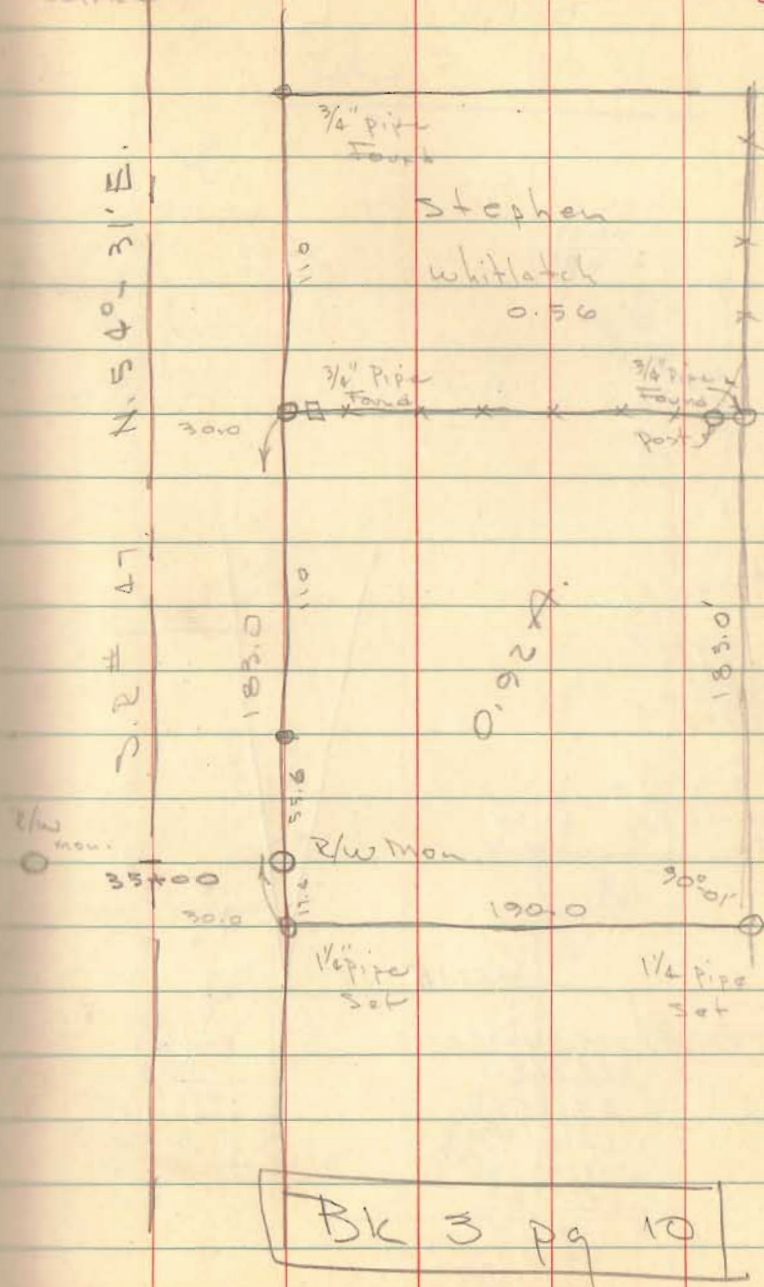 3/4" pipe
Found
Stephen
Whitlatch
0.56
110
N. 54° - 31' E.
3/4" Pipe
Found
3/4" Pipe
Found
post
30.0
110
183.0
S.R # 47
0.92 A.
183.0'
55.6
R/W
mon.
R/W Mon.
35+00
17.4
30.0
190.0
90°-01'
1 1/4" pipe
set
1 1/4 pipe
set
Bk 3 pg 10